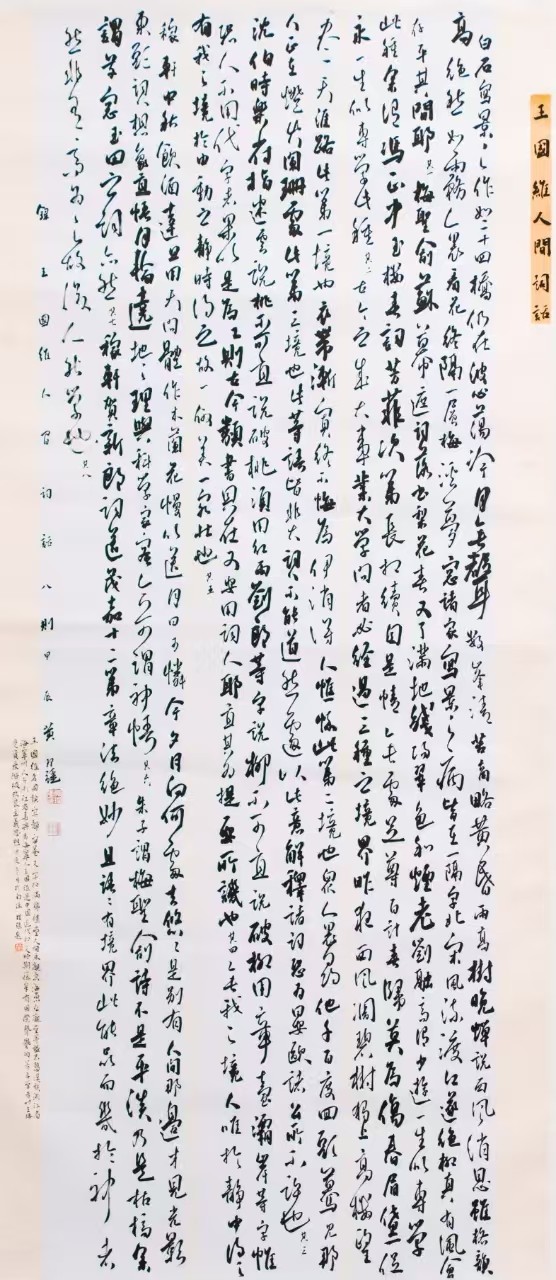 王國維人間詞話
白石寫景之作如二十四橋仍在波心蕩冷月無聲數峯清苦商略黃昏雨高樹晚蟬說西風消息雖格韻
高絕然如霧裏看花終隔一層梅溪夢窗諸家寫景之病皆在一隔字北宋風流渡江遂絕抑真有風會
存乎其間耶其一梅聖俞蘇幕遮詞落盡梨花春又了滿地殘陽翠色和煙老劉融齋謂少游一生似專學
此種余謂馮正中玉樓春詞芳菲次第長相續自是情無處足尊百計春歸莫為傷春眉黛促
永一生似專學此種其二古今之成大事業大學問者必經過三種之境界昨夜西風凋碧樹獨上高樓望
盡天涯路此第一境也衣帶漸寬終不悔為伊消得人憔悴此第二境也眾人裏尋他千百度回頭驀見那
人正在燈火闌珊處此第三境也此等語皆非大詞不能道然遽以此意解釋諸詞恐為晏歐諸公所不許也其三
沈伯時樂府指迷云說桃不可直說破桃須用紅雨劉郎等字說柳不可直說破柳用章臺灞岸等字惟
恐人不用代字者果以是為工則古今類書具在又安用詞人耶直其為提要所譏也其四無我之境人唯於靜中得之
有我之境於由動之靜時得之故一優美一宏壯也其五
稼軒中秋飲酒達旦用天問體作木蘭花慢以送月曰可憐今夕月向何處去悠悠是別有人間那邊才見光影
東頭詞想象直悟月輪遶地之理與科學家密合可謂神悟其六朱子謂梅聖俞詩不是平淡乃是枯槁余
謂草窗玉田之詞亦然其七稼軒賀新郎詞送茂嘉十二弟章法絕妙且語語有境界此能品而幾於神者
然非有意為之故後人不能學也其八
錄王國維人間詞話八則甲辰黃